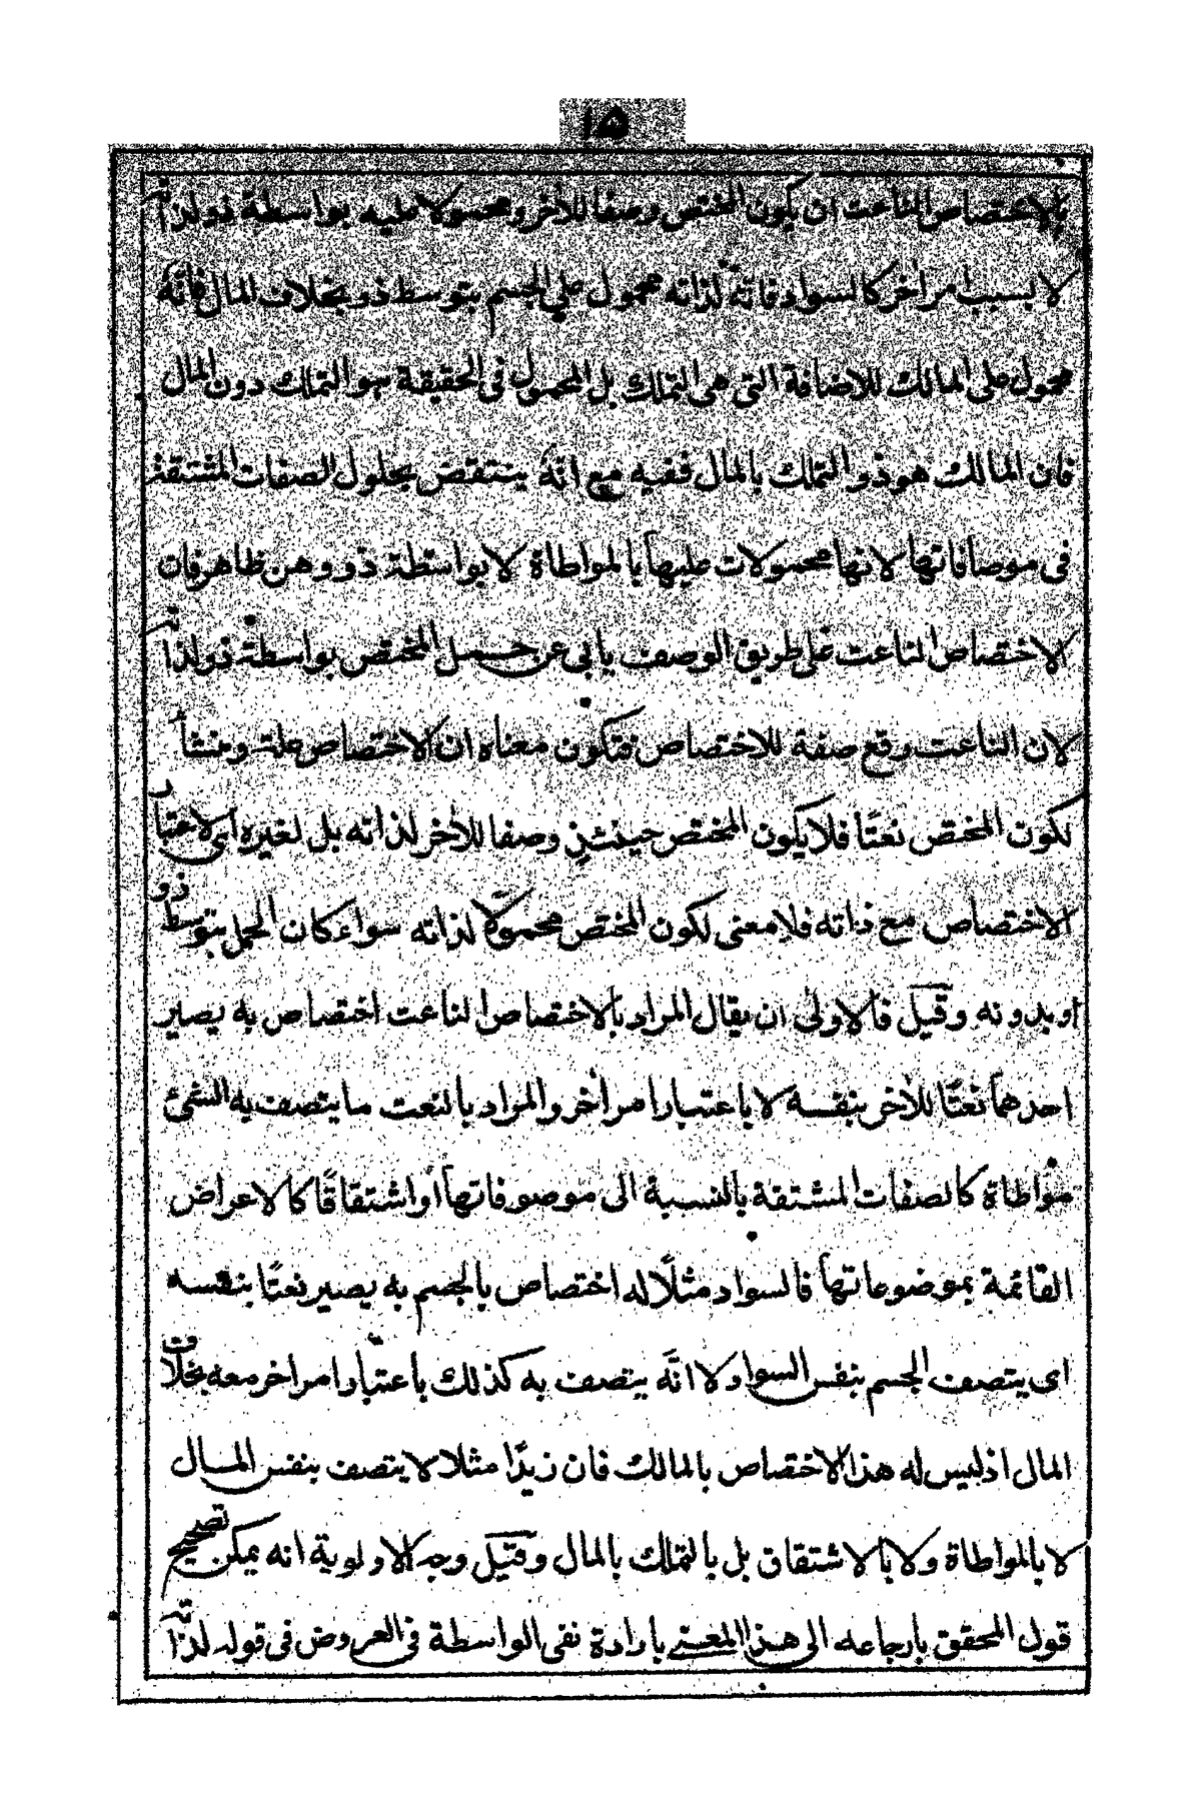 ۱۵
بالاختصاص الناعت ان يكون المختص وصفا للأخر ومحمولا عليه بواسطة ذو لذاته
لا بسبب امر أخر كالسواد فانّه لذاته محمول على الجسم بتوسط ذو بخلاف المال فانّه
محمول على المالك للاضافة التى هى التملك بل المحمول فى الحقيقة هو التملك دون المال
فان المالك هو ذو التملك بالمال ففيه مع انّه ينتقض بحلول الصفات المشتقة
فى موصافاتها لانها محمولات عليها بالمواطاة لا بواسطة ذو وهن ظاهر فان
الاختصاص الناعت على طريق الوصف يابى عن حمل المختص بواسطة ذو لذاته
لان الناعت وقع صفة للاختصاص فتكون معناه ان الاختصاص علة ومنشأ
لكون المختص نعتًا فلا يكون المختص حينئذٍ وصفا للأخر لذاته بل لغيره اى لاعتبار
الاختصاص مع ذاته فلا معنى لكون المختص محمولًا لذاته سواء كان الحمل بتوسط ذو
او بدونه وقيل فالاولى ان يقال المراد بالاختصاص الناعت اختصاص به يصير
احدهما نعتًا للأخر بنفسه لا باعتبار امر أخر والمراد بالنعت ما يتصف به الشئ
مواطاة كالصفات المشتقة بالنسبة الى موصوفاتها او اشتقاقًا كالاعراض
القائمة بموضوعاتها فالسواد مثلًا له اختصاص بالجسم به يصير نعتًا بنفسه
اى يتصف الجسم بنفس السواد لا انّه يتصف به كذلك باعتبار امر اخر معه بخلاف
المال اذ ليس له هذا الاختصاص بالمالك فان زيدًا مثلا لا يتصف بنفس المال
لا بالمواطاة ولا بالاشتقاق بل بالتملك بالمال وقيل وجه الاولوية انه يمكن تصحيح
قول المحقق بارجاعه الى هذا المعنى بارادة نفى الواسطة فى العروض فى قوله لذاته